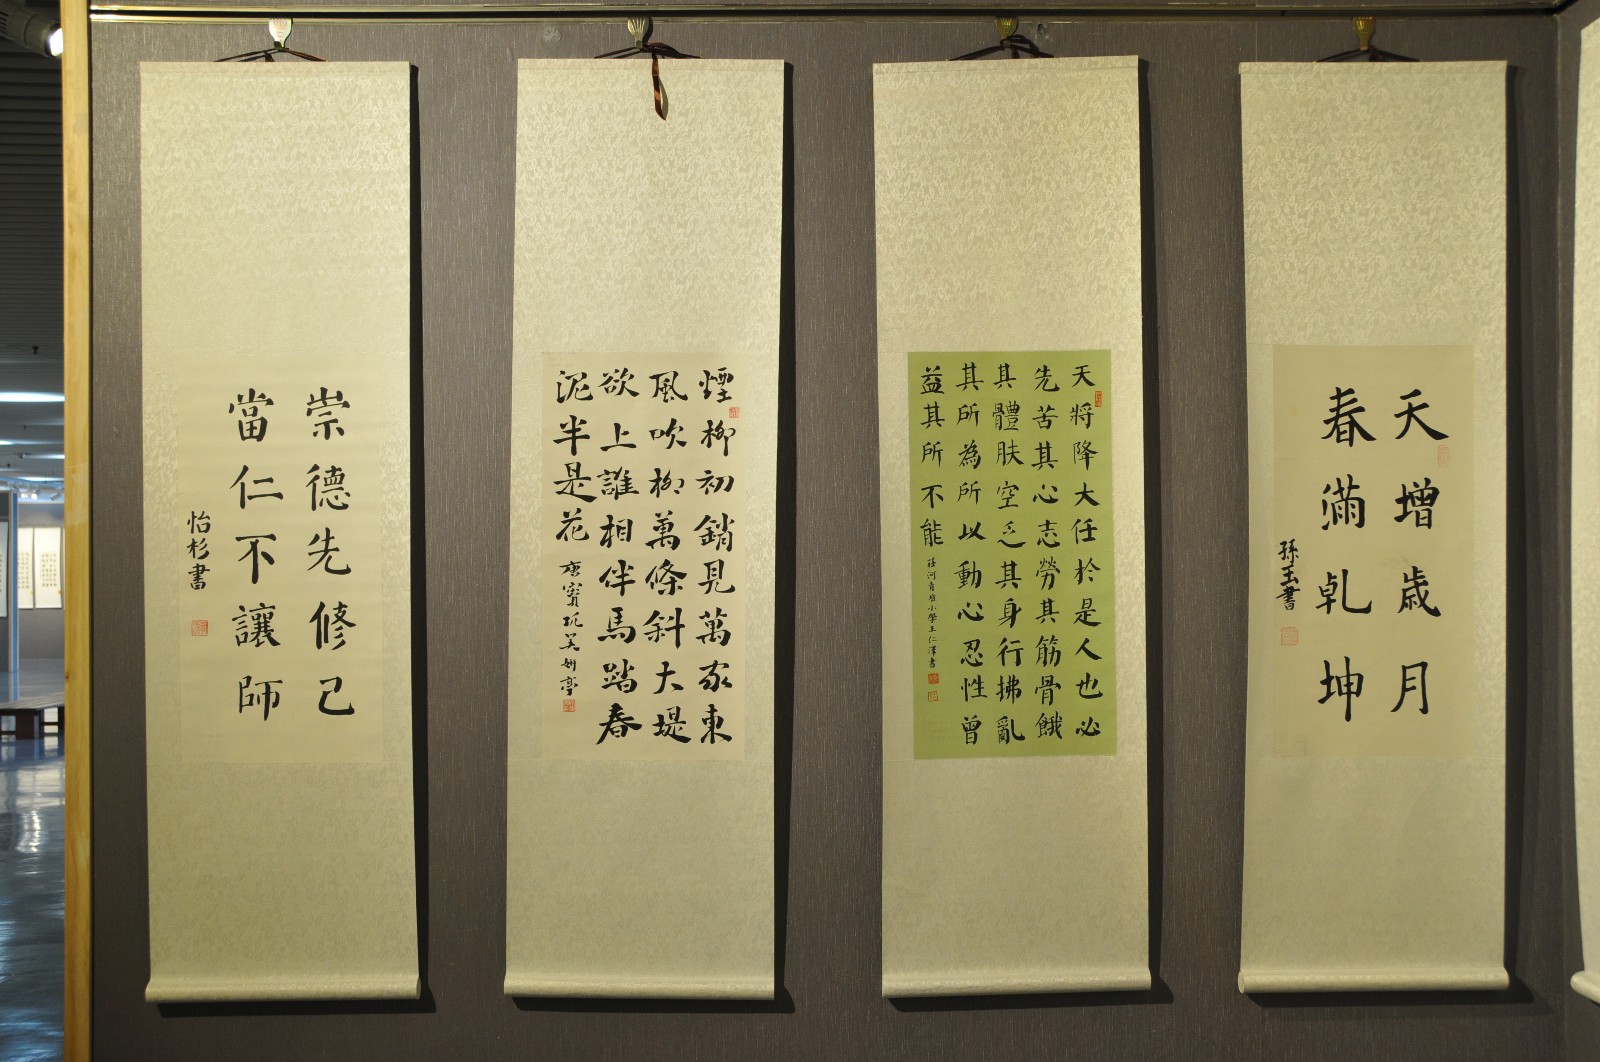 天增歳月
春滿乹坤
孫玉書
天將降大任於是人也必
先苦其心志勞其筋骨餓
其體肤空乏其身行拂亂
其所為所以動心忍性曾
益其所不能
莊河青堆小學王仁澤書
煙柳初銷見萬家東
風吹柳萬條斜大堤
欲上誰相伴馬踏春
泥半是花
唐竇
崇德先修己
當仁不讓師
怡杉書